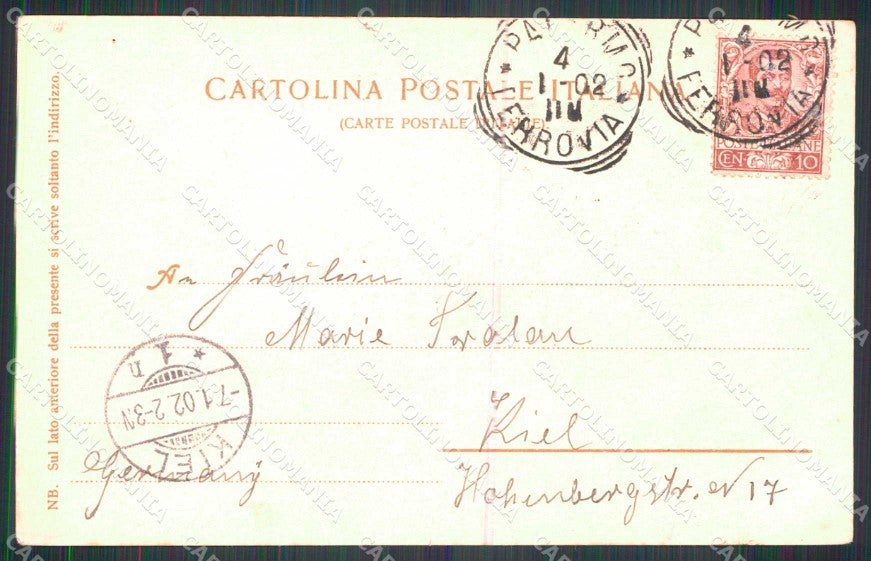 CARTOLINA POSTALE ITALIANA
(CARTE POSTALE
PALERMO
4
1-02
11M
FERROVIA
4
1-02
11M
FERROVIA
POSTE ITALIANE
CEN 10
NB. Sul lato anteriore della presente si scrive soltanto l'indirizzo.
An Fräulein
Marie
Kiel
Germany
Hohenbergstr. N 17
KIEL
-7.1.02.2-3N
* 1 n
CARTOLINOMANIA